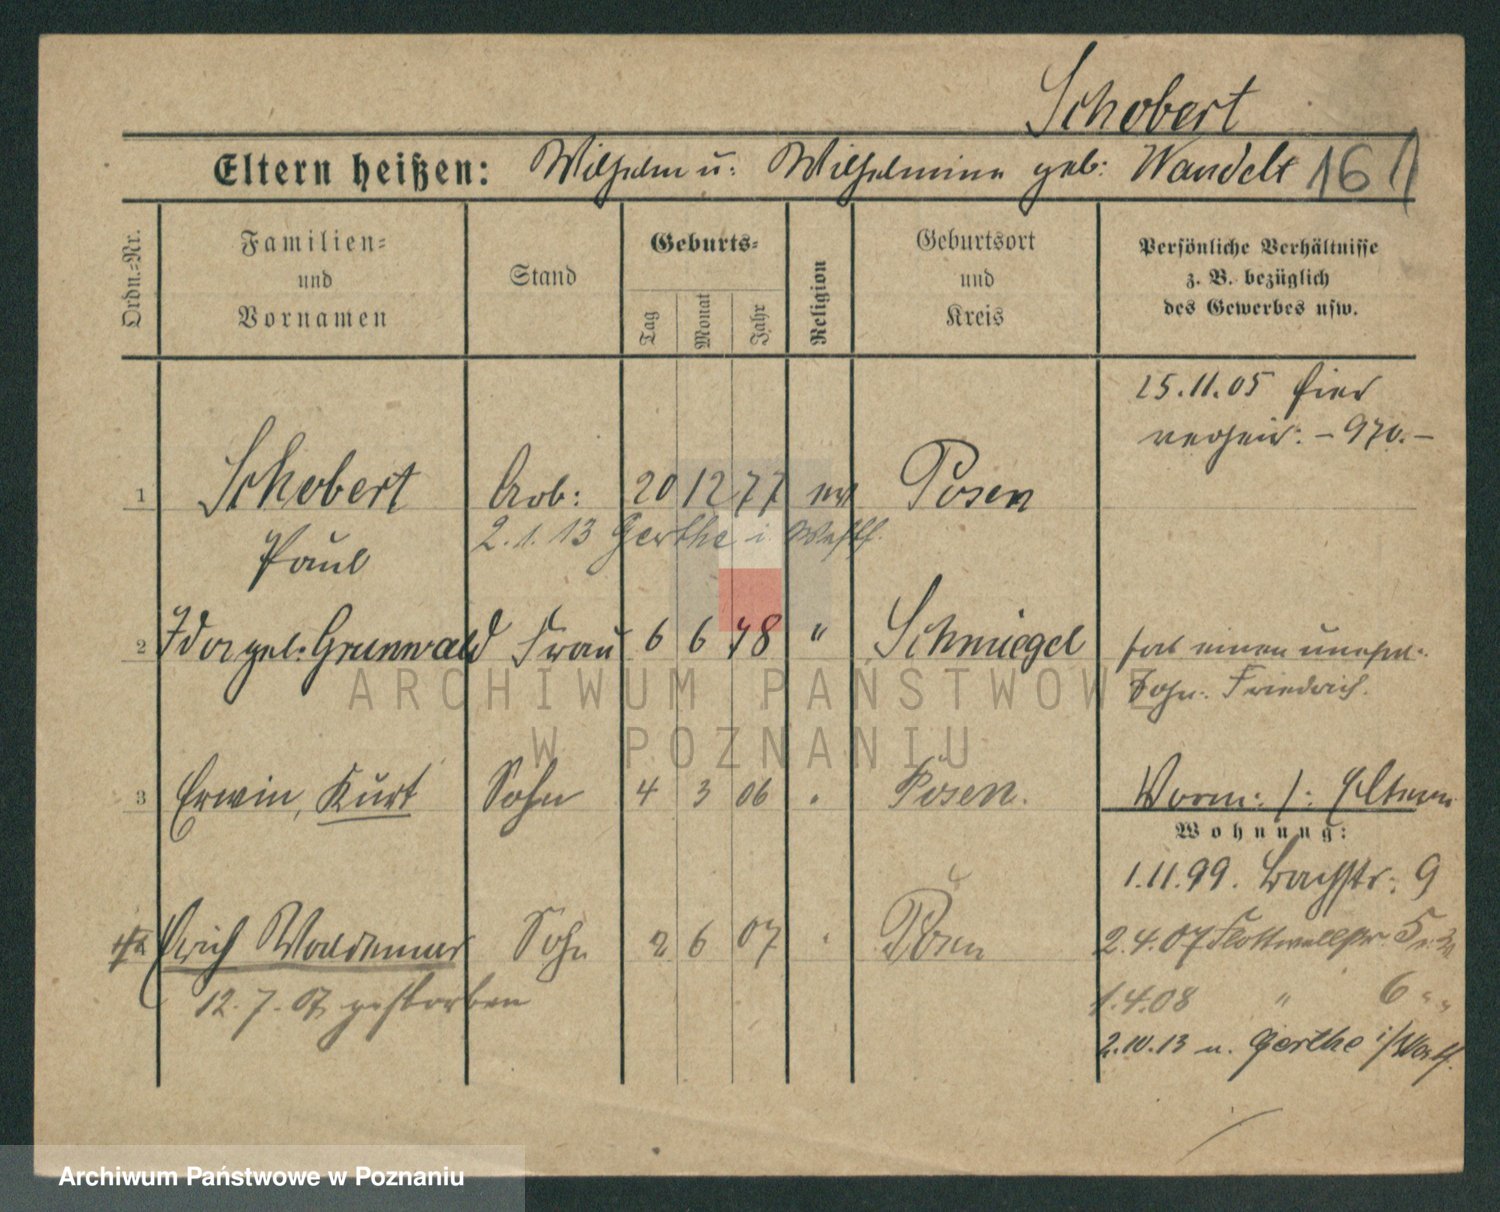 Schobert
Eltern heißen: Wilhelm u: Wilhelmine geb: Wandelt 16
Ordn.=Nr.
Familien=
und
Vornamen
Stand
Geburts=
Tag
Monat
Jahr
Religion
Geburtsort
und
Kreis
Persönliche Verhältnisse
z. B. bezüglich
des Gewerbes usw.
25.11.05 hier
verheir: - 970. -
1 Schobert Arb: 20 12 77 ev Posen
2.1.13 Gerthe i Westf.
Paul
2 Ida geb: Grunwald Frau 6 6 78 " Schmiegel hat einen unehel:
Sohn: Friedrich.
ARCHIWUM PAŃSTWOWE
W POZNANIU
3 Erwin, Kurt Sohn 4 3 06 " Posen. Vorm: /: Eltern
Wohnung:
1.11.99. Bachstr: 9
4 Erich Waldemar Sohn 2 6 07 " Posen 2.4.07 Flottwellstr. 5
12.7.07 gestorben
1.4.08 " 6 " "
2.10.13 n. Gerthe i/Westf.
Archiwum Państwowe w Poznaniu